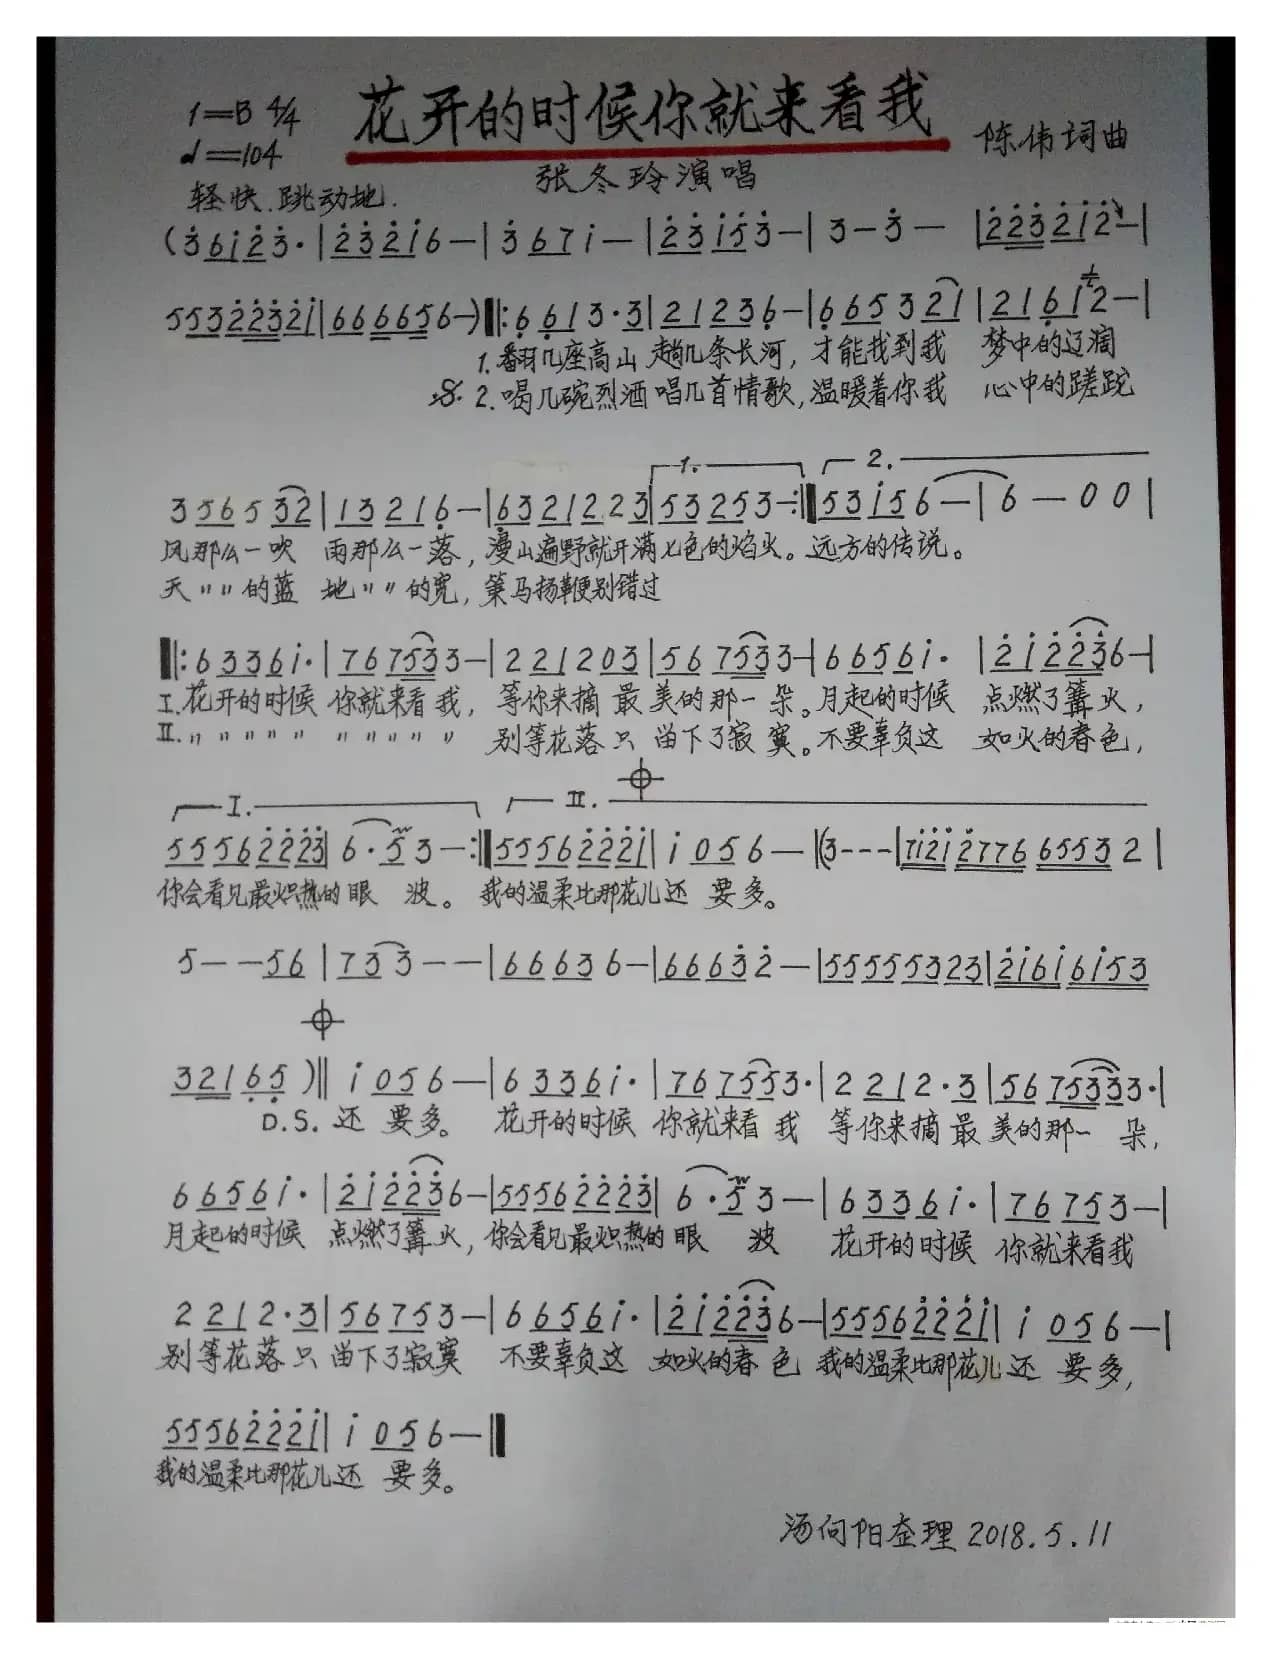 花开的时候你就来看我
1=B 4/4
♩=104
陈伟词曲
张冬玲演唱
轻快.跳动地.
(3̇ 6 i 2̇ 3̇· | 2̇ 3̇ 2̇ i 6 — | 3̇ 6 7 i — | 2̇ 3̇ i 5̇ 3̇ — | 3 — 3̇ — | 2̇ 2̇ 3̇ 2̇ i 2̇ — |
5 5 3 2̇ 2̇ 3̇ 2̇ i | 6 6 6 6 5 6 —) ‖: 6̣ 6̣ 1 3·3 | 2 1 2 3 6̣ — | 6̣ 6 5 3 2 1 | 2 1 6̣ 1 2 — |
1.翻几座高山 趟几条长河,才能找到我 梦中的辽阔
𝄋 2.喝几碗烈酒 唱几首情歌,温暖着你我 心中的蹉跎
1. 2.
3 5 6 5 3 2 | 1 3 2 1 6̣ — | 6̣ 3 2 1 2 2 3 | 5 3 2 5 3 — :‖ 5 3 i 5 6 — | 6 — 0 0 |
风那么一吹 雨那么一落,漫山遍野就开满七色的焰火。远方的传说。
天〃〃的蓝 地〃〃的宽,策马扬鞭别错过
‖: 6 3 3 6 i· | 7 6 7 5 3 3 — | 2 2 1 2 0 3 | 5 6 7 5 3 3 — | 6 6 5 6 i· | 2̇ i 2̇ 2̇ 3̇ 6 — |
I.花开的时候 你就来看我,等你来摘 最美的那一朵。月起的时候 点燃了篝火,
II.〃〃〃〃〃 〃〃〃〃〃 别等花落只 留下了寂寞。不要辜负这 如火的春色,
I. II. 𝄌
5 5 5 6 2̇ 2̇ 2̇ 3̇ | 6·5̇ 3 — :‖ 5 5 5 6 2̇ 2̇ 2̇ i | i 0 5 6 — | (3 - - - | 7 i 2̇ i 2̇ 7 7 6 6 5 5 3 2 |
你会看见最炽热的眼 波。我的温柔比那花儿还 要多。
5 — — 5 6 | 7 3 3 — — | 6 6 6 3 6 — | 6 6 6 3̇ 2̇ — | 5 5 5 5 5 3 2 3 | 2̇ i 6 i 6 i 5 3
𝄌
3 2 1 6̣ 5̣ ) ‖ i 0 5 6 — | 6 3 3 6 i· | 7 6 7 5 5 3· | 2 2 1 2·3 | 5 6 7 5 3 3 3· |
D.S. 还 要多。 花开的时候 你就来看我 等你来摘最 美的那一 朵,
6 6 5 6 i· | 2̇ i 2̇ 2̇ 3̇ 6 — | 5 5 5 6 2̇ 2̇ 2̇ 3̇ | 6·5̇ 3 — | 6 3 3 6 i· | 7 6 7 5 3 — |
月起的时候 点燃了篝火,你会看见最炽热的眼 波 花开的时候 你就来看我
2 2 1 2·3 | 5 6 7 5 3 — | 6 6 5 6 i· | 2̇ i 2̇ 2̇ 3̇ 6 — | 5 5 5 6 2̇ 2̇ 2̇ i | i 0 5 6 — |
别等花落只 留下了寂寞 不要辜负这 如火的春色 我的温柔比那花儿还 要多,
5 5 5 6 2̇ 2̇ 2̇ i | i 0 5 6 — ‖
我的温柔比那花儿还 要多。
汤向阳整理 2018.5.11